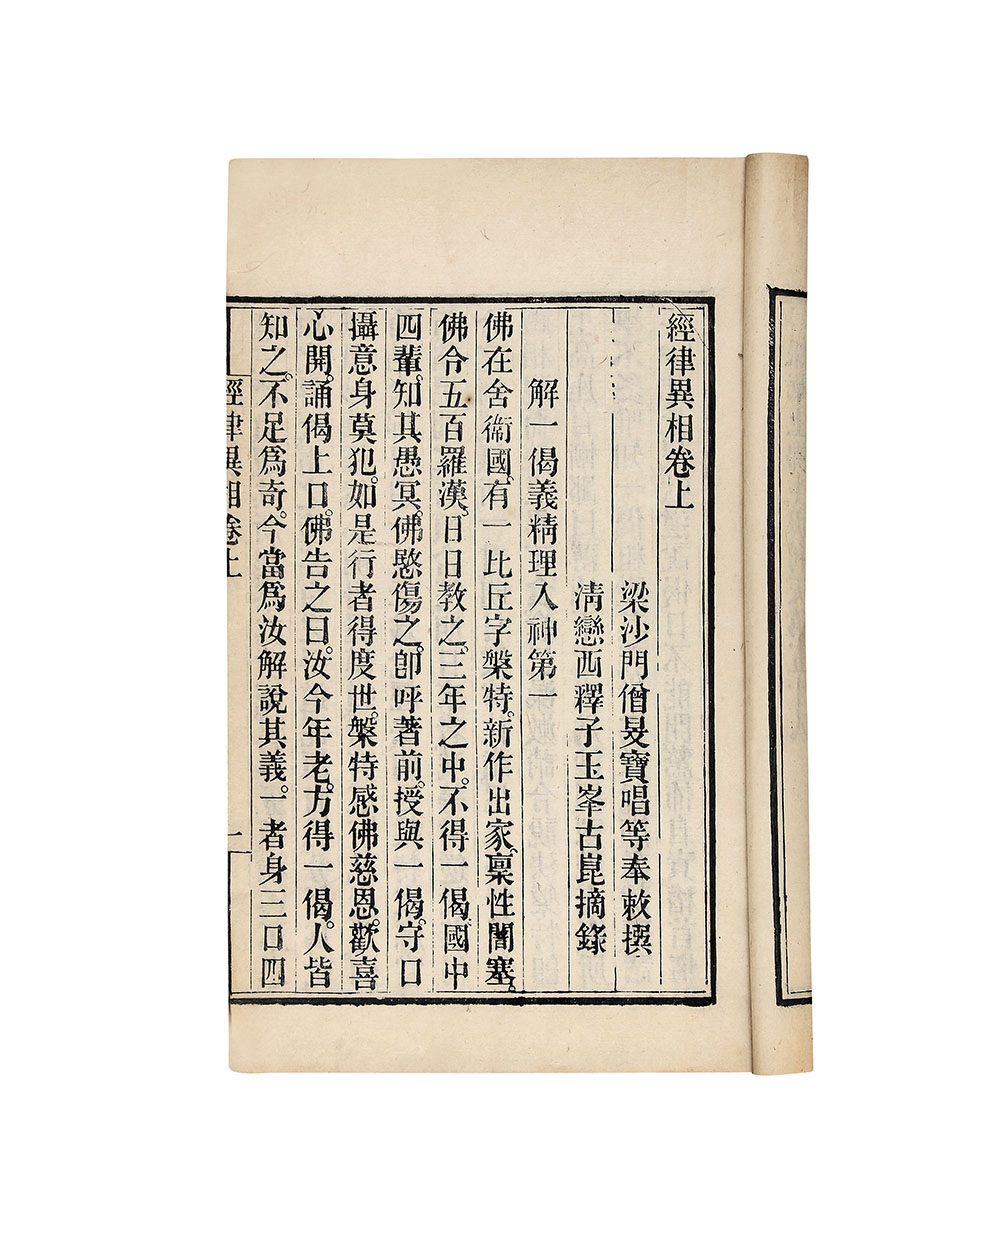 經律異相卷上
梁沙門僧旻寶唱等奉敕撰
清戀西釋子玉峯古崑摘錄
解一偈義精理入神第一
佛在舍衞國。有一比丘字槃特。新作出家。稟性闇塞。
佛令五百羅漢。日日教之。三年之中。不得一偈。國中
四輩。知其愚冥。佛愍傷之。卽呼著前。授與一偈。守口
攝意身莫犯。如是行者得度世。槃特感佛慈恩。歡喜
心開。誦偈上口。佛告之曰。汝今年老。方得一偈。人皆
知之。不足爲奇。今當爲汝解說其義。一者身三口四
經律異相卷上
一